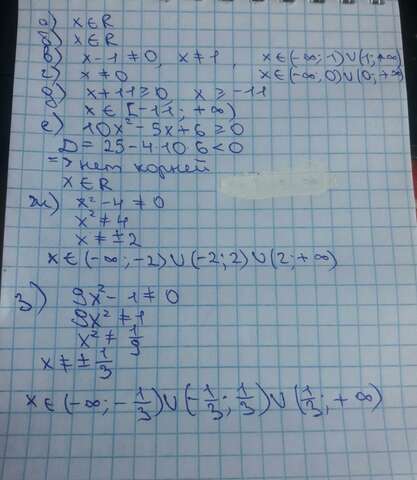 а) x∈R
б) x∈R
в) x-1≠0, x≠1, x∈(-∞;1)∪(1;+∞)
г) x≠0 x∈(-∞;0)∪(0;+∞)
д) x+11≥0, x≥-11
x∈[-11;+∞)
е) 10x²-5x+6≥0
D=25-4·10·6<0
=> нет корней
x∈R
ж) x²-4≠0
x²≠4
x≠±2
x∈(-∞;-2)∪(-2;2)∪(2;+∞)
з) 9x²-1≠0
9x²≠1
x²≠1/9
x≠±1/3
x∈(-∞;-1/3)∪(-1/3;1/3)∪(1/3;+∞)